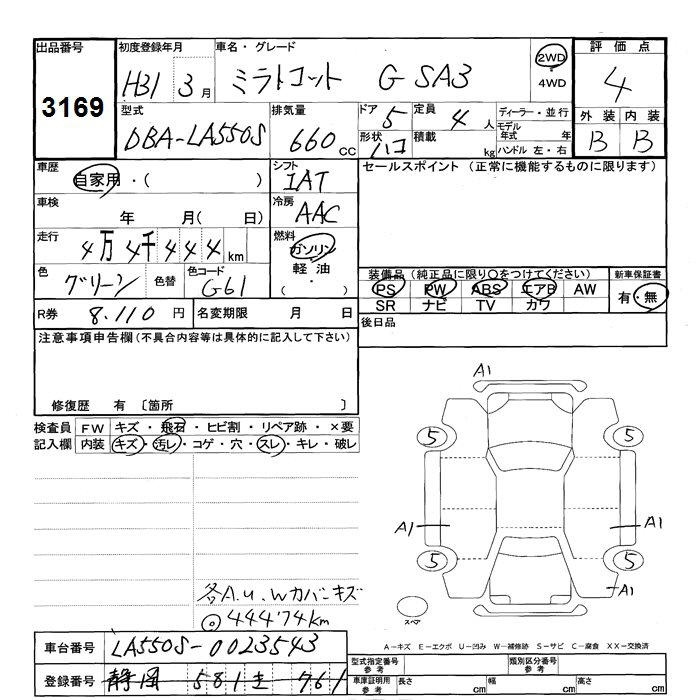 出品番号 初度登録年月 車名・グレード 評価点
3169 H31 3月 ミラトコット G SA3 2WD 4WD 4
型式 排気量 ドア 定員 ディーラー・並行 外装 内装
DBA-LA550S 660cc 5 4人 モデル年式 年 B B
形状 ハコ 積載 kg ハンドル 左・右
車歴 シフト セールスポイント (正常に機能するものに限ります)
自家用・( ) IAT
車検 冷房
年 月( 日) AAC
走行 燃料
4万4千444km ガソリン
色 色コード 軽油
グリーン 色替 G61 ( ・ )
装備品(純正品に限り○をつけてください) 新車保証書
PS PW ABS エアB AW 有・無
SR ナビ TV カワ
R券 8.110円 名変期限 月 日 後日品
注意事項申告欄(不具合内容等は具体的に記入して下さい)
修復歴 有 〔箇所 〕
検査員 FW キズ・飛石・ヒビ割・リペア跡・×要
記入欄 内装 キズ・汚レ・コゲ・穴・スレ・キレ・破レ
A1
5 5
A1 A1
5 5
A1
スペア
各A.u.wカバーキズ
44474km
A-キズ E-エクボ U-凹み W-補修跡 S-サビ C-腐食 XX-交換済
車台番号 LA550S-0023543
型式指定番号 参考 類別区分番号 参考
登録番号 静岡 581 761
車庫証明用 参考 長さ cm 幅 cm 高さ cm